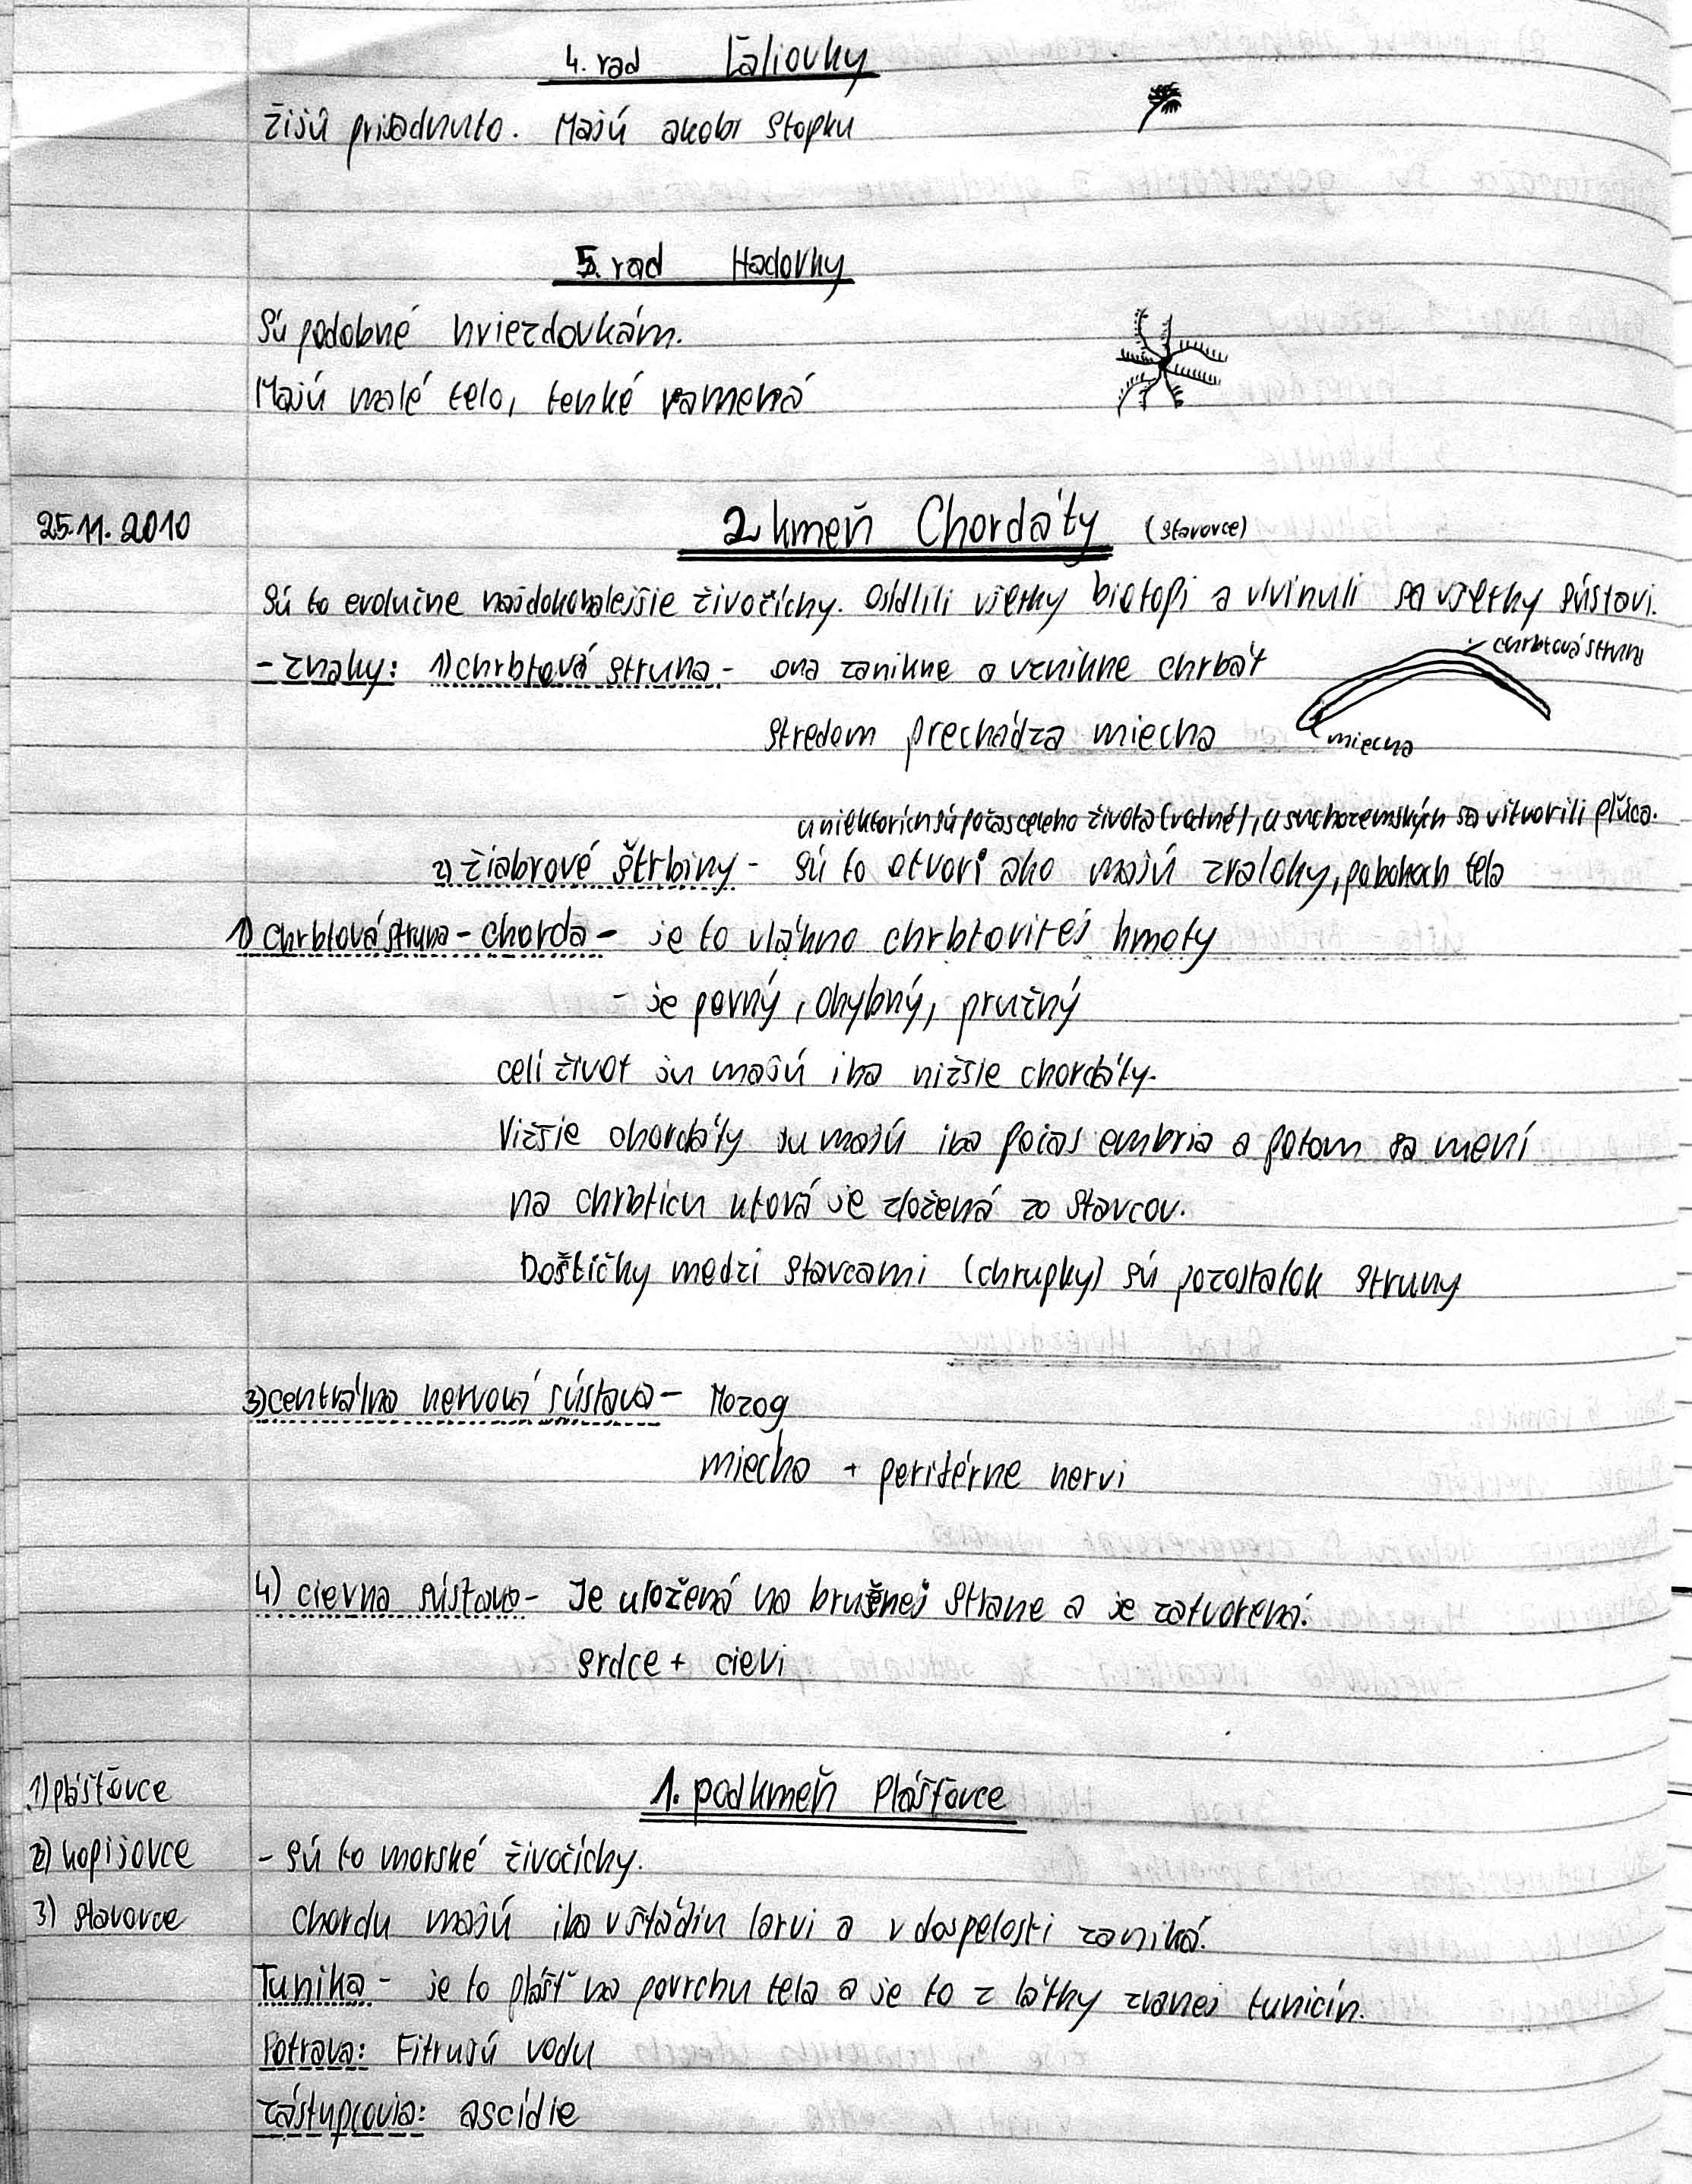 4. rad Ľaliovky
Žijú prisadnuto. Majú akobi stopku
5. rad Hadovky
Sú podobné hviezdovkám.
Majú malé telo, tenké ramená
25.11.2010
2. kmeň Chordáty (stavovce)
Sú to evolučne najdokonalejšie živočíchy. Osídlili všetky biotopi a vivinuli sa všetky sústavi.
- znaky: 1) chrbtová struna - ona zanikne a vznikne chrbát
chrbtová struna
stredom prechádza miecha
miecha
u niektorích sú počas celeho života (vodné), u suchozemských sa vitvorili pľúca.
2) žiabrové štrbiny - sú to otvori ako majú žraloky, po bokoch tela
1) Chrbtová struna - chorda - je to vlákno chrbtovitej hmoty
- je pevný, ohybný, pružný
celí život ju majú iba nižšie chordáty.
Vižšie chordáty ju majú iba počas embria a potom sa mení
na chrbticu ktorá je zložená zo stavcov.
Doštičky medzi stavcami (chrupky) sú pozostatok struny
3) centrálna nervová sústava - Mozog
miecha + periférne nervi
4) cievna sústava - Je uložená na brušnej strane a je zatvorená.
srdce + cievi
1. podkmeň Plášťovce
1) plášťovce
2) kopijovce
3) stavovce
- sú to morské živočíchy.
chordu majú iba v štádiu larvi a v dospelosti zaniká.
Tunika - je to plášť na povrchu tela a je to z látky zvanej tunicín.
Potrava: Fitrujú vodu
zástupcovia: ascídie